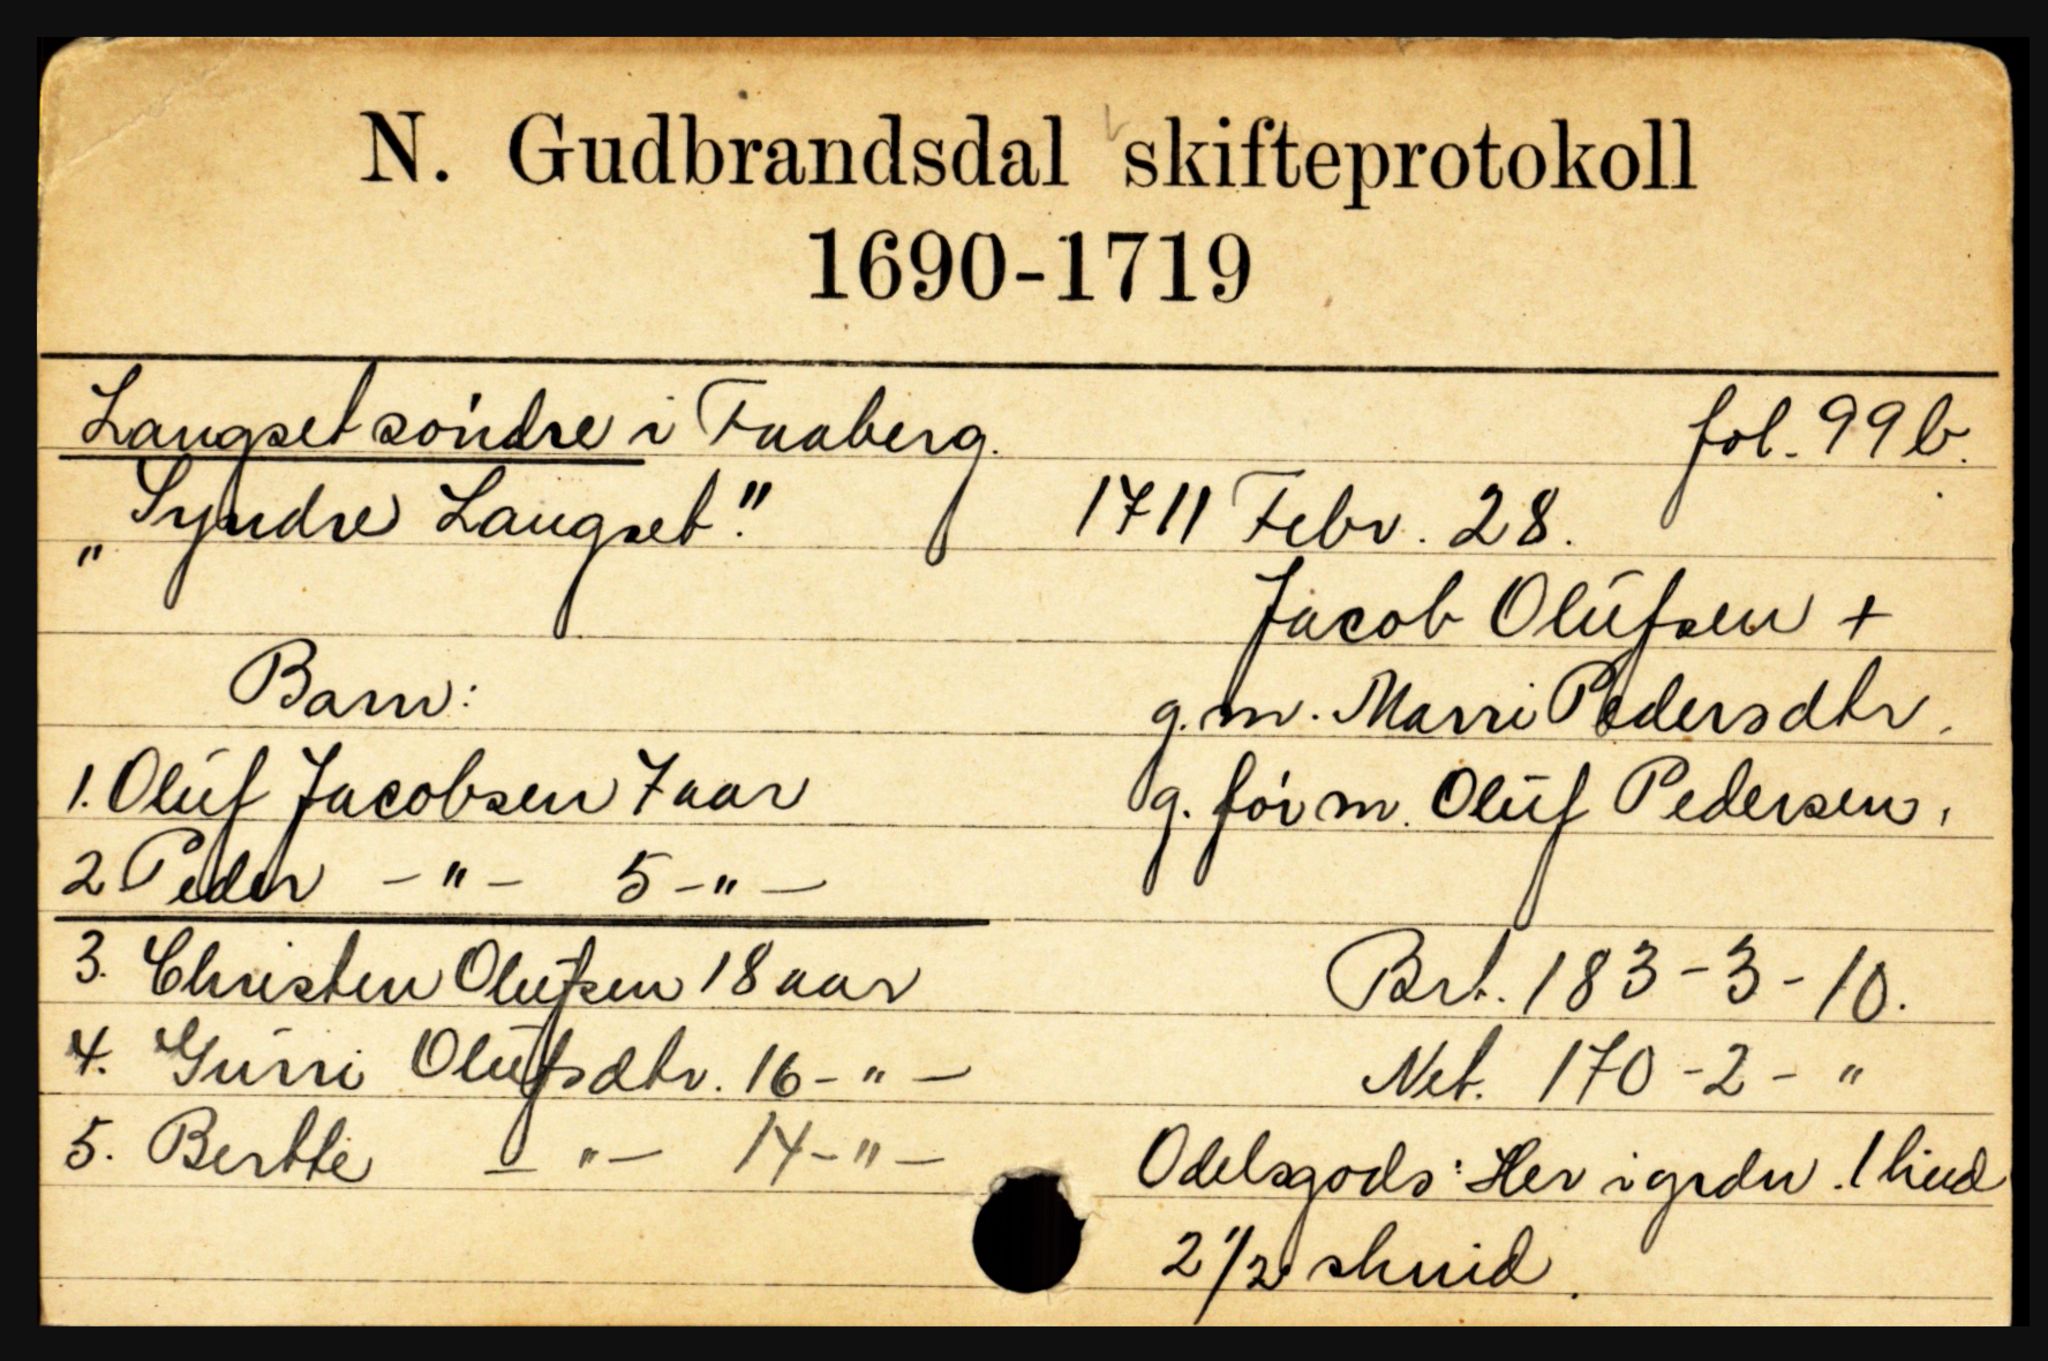 N. Gudbrandsdal skifteprotokoll
1690-1719
Langset söndre i Faaberg. fol. 99 b.
„Syndre Langset." 1711 Febr. 28.
Jacob Olŭfsen +
Barn: g. m. Marri Pedersdtr.
1. Olŭf Jacobsen 7 aar g. för m. Olŭf Pedersen.
2 Peder - " - 5 - " -
3. Christen Olŭfsen 18 aar Brt. 183 - 3 - 10.
4. Gŭrri Olŭfsdtr. 16 - " - Net. 170 - 2 - "
5. Berthe - " - 14 - " - Odelsgods: Her i grdn. 1 hud
2 1/2 skind.